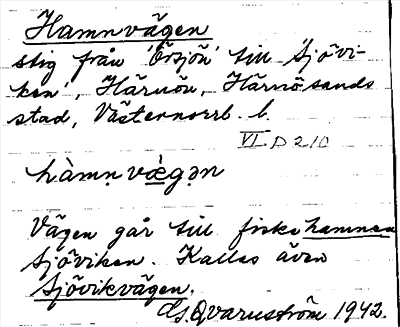 Hamnvägen
stig från 'Örsjön' till 'Sjövi-
ken', Härnön, Härnösands
stad, Västernorrl. l.
VI D 210
hàmṇ væ̀gə̣n
Vägen går till fiskehamnen
Sjöviken. Kallas även
Sjövikvägen.
G. Qvarnström 1942.